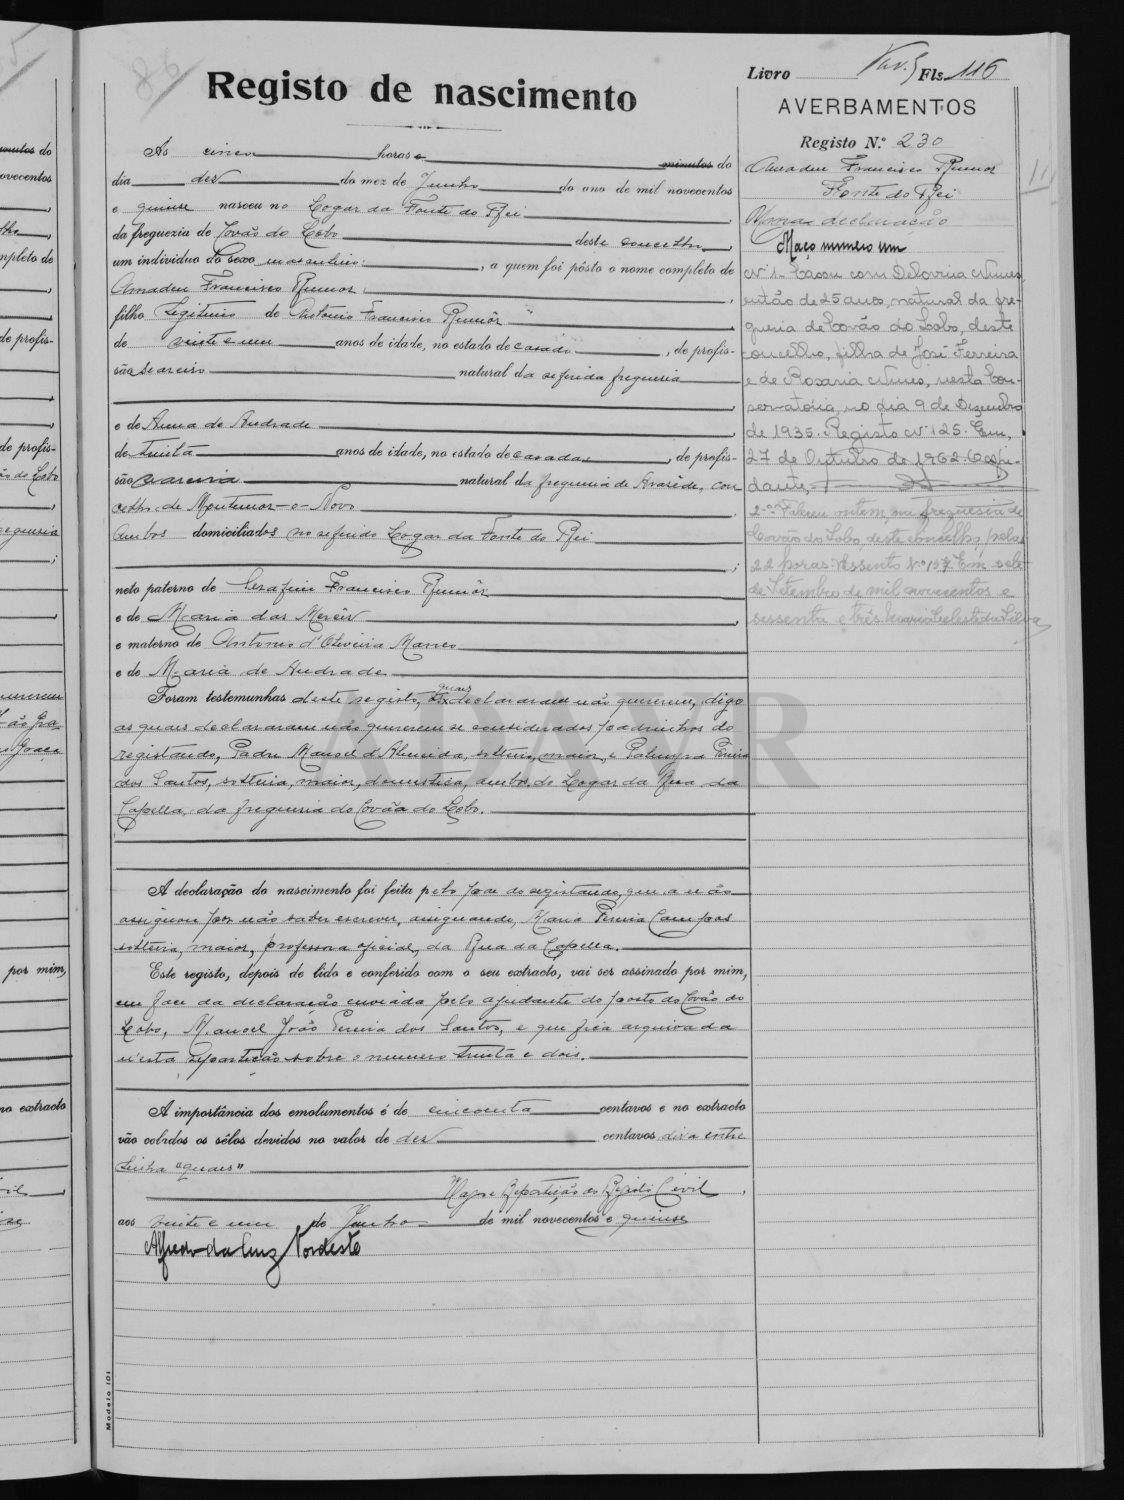 Livro Fls. 116
Registo de nascimento
As cinco horas e minutos do
dia dez do mez de Junho do ano de mil novecentos
e quinze nasceu no Logar da Fonte do Rei
da freguezia de Covão do Lobo deste concelho,
um individuo do sexo masculino, a quem foi pôsto o nome completo de
Amadeu Francisco Rumor,
filho legitimo de Antonio Francisco Rumôr
de vinte e um anos de idade, no estado de casado, de profis-
são seareiro natural da referida freguesia
e de Anna de Andrade
de trinta anos de idade, no estado de casada, de profis-
são seareira natural da freguesia de Arazêde, con
celho de Montemor-o-Novo
Ambos domiciliados no referido Logar da Fonte do Rei
;
neto paterno de Serafim Francisco Rumôr
e de Maria das Mercês,
e materno de Antonio d'Oliveira Manco
e de Maria de Andrade
Foram testemunhas deste registo, quaes declararam não quererem, digo
as quaes declararam não quererem ser considerados padrinhos do
registando, Padre Manoel d'Almeida, solteiro, maior, e Palmyra Pereira
dos Santos, solteira, maior, domestica, ambos do Logar da Rua da
Capella, da freguesia do Covão do Lobo.
A declaração do nascimento foi feita pelo pae do registando, que a não
assignou por não saber escrever, assignando, Maria Pereira Campos
solteira, maior, professora oficial, da Rua da Capella.
Este registo, depois de lido e conferido com o seu extracto, vai ser assinado por mim,
em face da declaração enviada pelo ajudante do posto do Covão do
Lobo, Manoel João Pereira dos Santos, e que fica arquivada
n'esta repartição sobre o numero trinta e dois.
A importância dos emolumentos é de cincoenta centavos e no extracto
vão colados os sêlos devidos no valor de dez centavos diz a entre
linha "quaes"
Repartição do Registo Civil,
aos vinte e um de Junho de mil novecentos e quinze
Alfredo da Cruz Nordeste
Modelo 101
AVERBAMENTOS
Registo N.º 230
Amadeu Francisco Rumor
Fonte do Rei
declaração
Maço numero um
Nº 1- Casou com Delovina Nunes
então de 25 anos, natural da fre-
guesia de Covão do Lobo, deste
concelho, filha de José Ferreira
e de Rosaria Nunes, nesta Con-
servatória, no dia 9 de Dezembro
de 1935. Registo Nº 125. Em,
27 de Outubro de 1962. O aju-
dante,
2.º Faleceu ontem, na freguesia de
Covão do Lobo, deste concelho, pelas
22 horas. Assento Nº 157. Em sete
de Setembro de mil novecentos e
sessenta e três. Maria Celeste da Silva